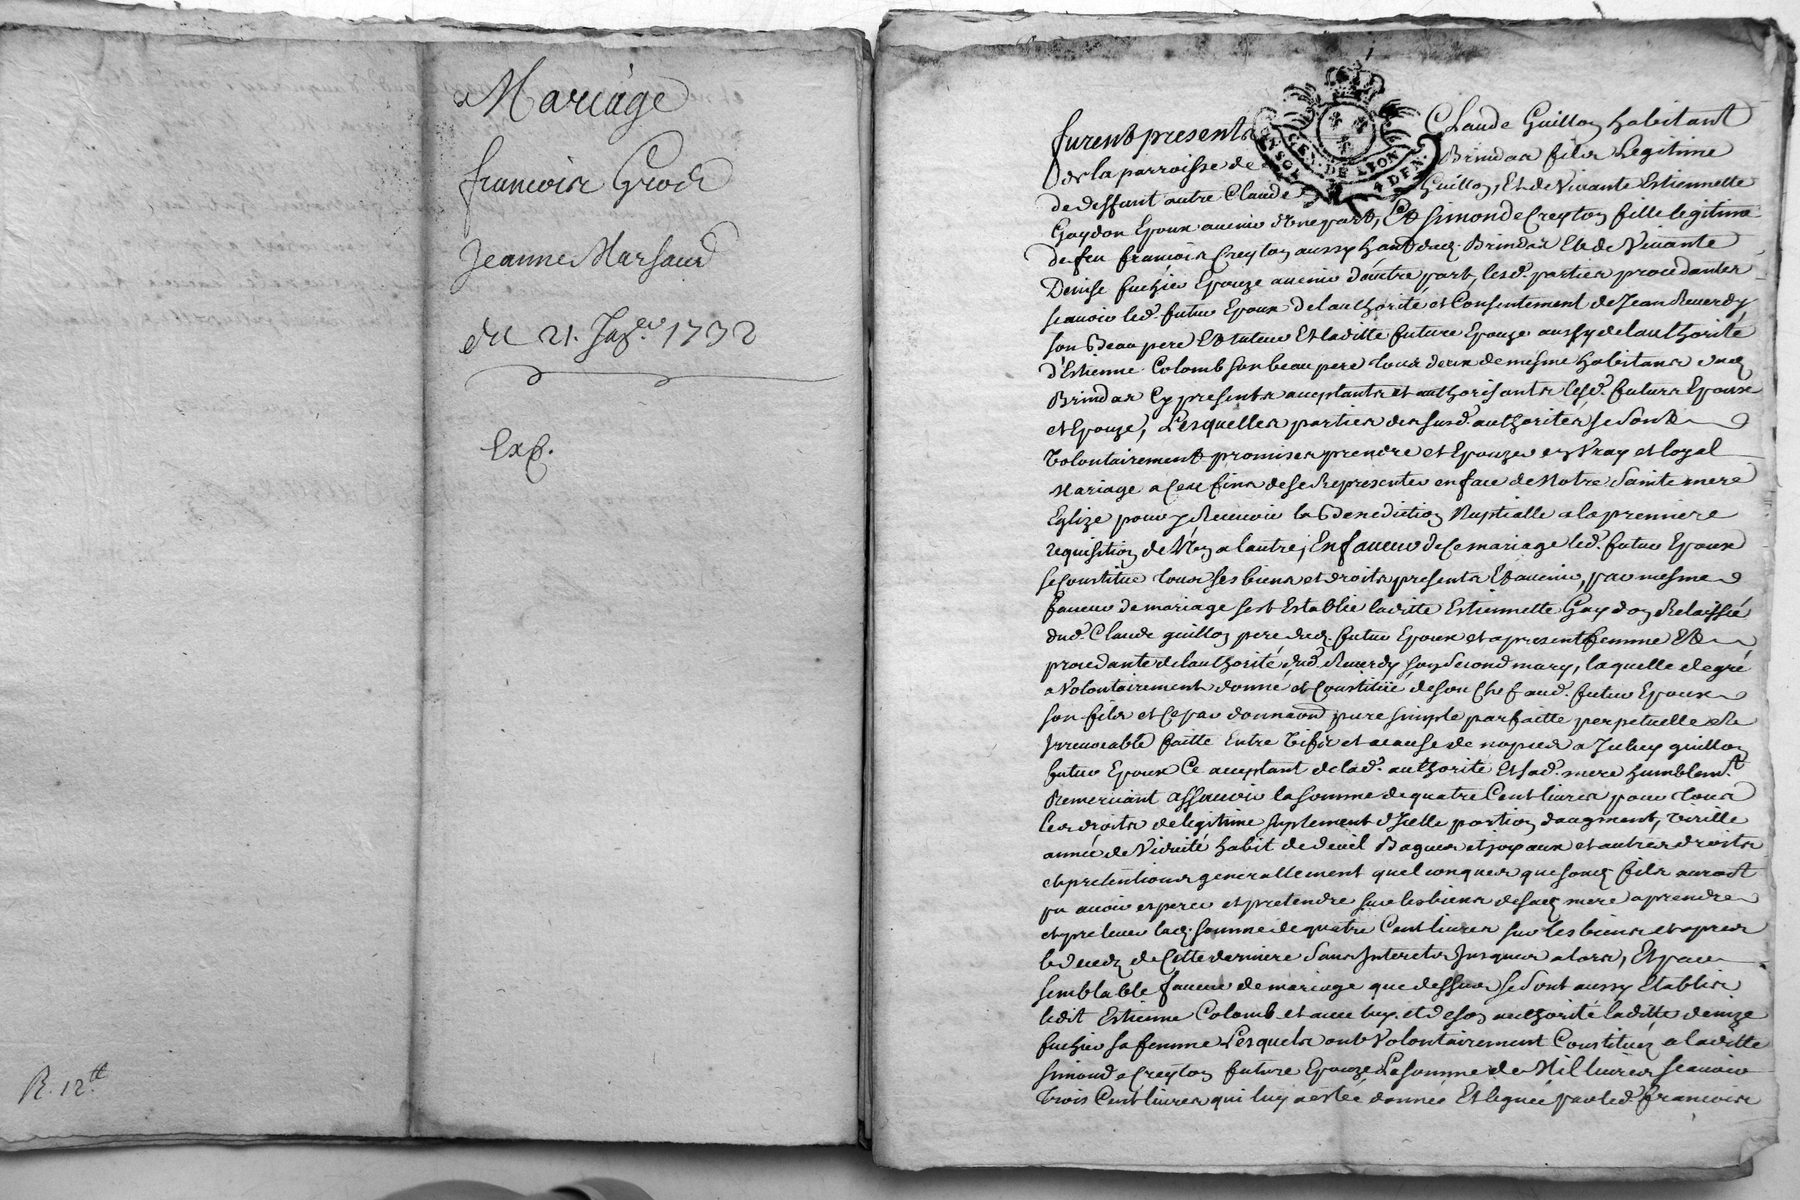 Mariage
francois Grod
Jeanne Marsaud
du 21. Jan.er 1732
Exp.
R. 12.tt
GEN. DE LYON
4 DEN.
furent presents Claude Guillon habitant
de la parroisse de Brindas fils Legitime
de deffunt autre Claude Guillon, Et de Vivante Estiennette
Gaydon Epoux avenir d'une part, Et Simonde Creyton fille legitime
de feu francois Creyton aussy hant dud. Brindas Et de Vivante
Denise fuchier Epouze avenir d'autre part, lesd. parties procedantes
scavoir led. futur Epoux de l'authorité et Consentement de Jean Reverdy
son Beau pere Et tuteur Et laditte future Epouze aussy de l'authorité
d'Estienne Colomb son beau pere tous deux de mesme habitants dud.
Brindas Cy presents acceptants et authorisants lesd. futurs Epoux
et Epouze, Lesquelles parties des susd. authorités se sont
Volontairement promises prendre et Epouzer en Vray et loyal
Mariage a ces fins de se Representer en face de Notre Sainte mere
Eglize pour y Recevoir la Benediction Nuptialle a la premiere
requisition de l'un a l'autre, En faveur de Ce mariage led. futur Epoux
se Constitue tous ses biens et droits presents Et avenir, par mesme
faveur de mariage s'est Establie laditte Estiennette Gaydon Relaissée
dud. Claude guillon pere dud. futur Epoux et a present femme Et
procedante de l'authorité dud. Reverdy son second mary, laquelle de gré
a Volontairement donné et Constitüé de son Chef aud. futur Epoux
son fils et Ce par donnaõn pure simple parfaitte perpetuelle Et
Irrevocable faitte Entre Vifs et a cause de nopces a Iceluy guillon
futur Epoux Ce acceptant de lad. authorité Et sad. mere humblemt.
Remerciant assavoir la somme de quatre Cent livres pour tous
les droits de legitime suplement d'Icelle portion d'augment, virille
année de Viduité habit de deüil Bagues et joyaux et autres droits
et pretentions generallement quelconques que sond. fils auroit
pu avoir esperer et pretendre sur les biens de sad. mere a prendre
et prelever lad. somme de quatre Cent livres sur les biens et apres
le deceds de Cette derniere Sans Interets Jusques alors, Et par
semblable faveur de mariage que dessus se sont aussy Etablis
ledit Estienne Colomb et avec luy et de son authorité laditte denize
fuchier sa femme Lesquels ont Volontairement Constitüé a laditte
Simonde Creyton future Epouze La somme de Mil livres scavoir
Trois Cent livres qui luy a esté donnée Et leguée par led. francois